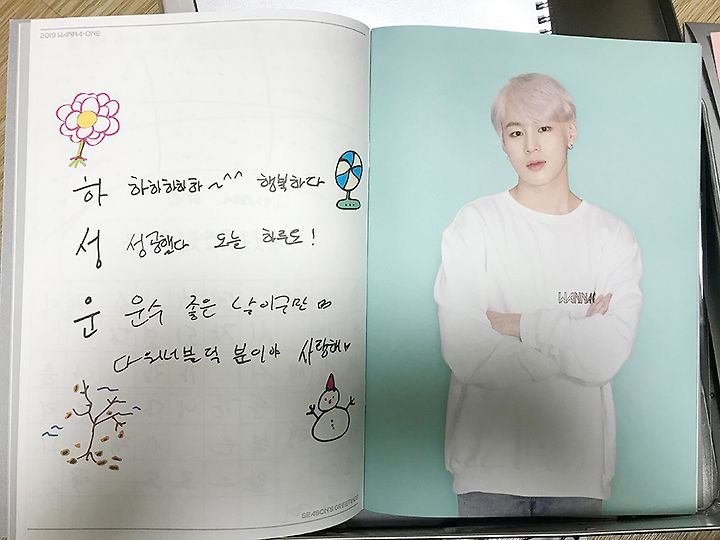 2019 WANNA·ONE
하 하하하하하~^^ 행복하다
성 성공했다 오늘 하루도!
운 운수 좋은 날이구만
다 워너블 덕분이야 사랑해♥
SEASON'S GREETINGS
WANNA